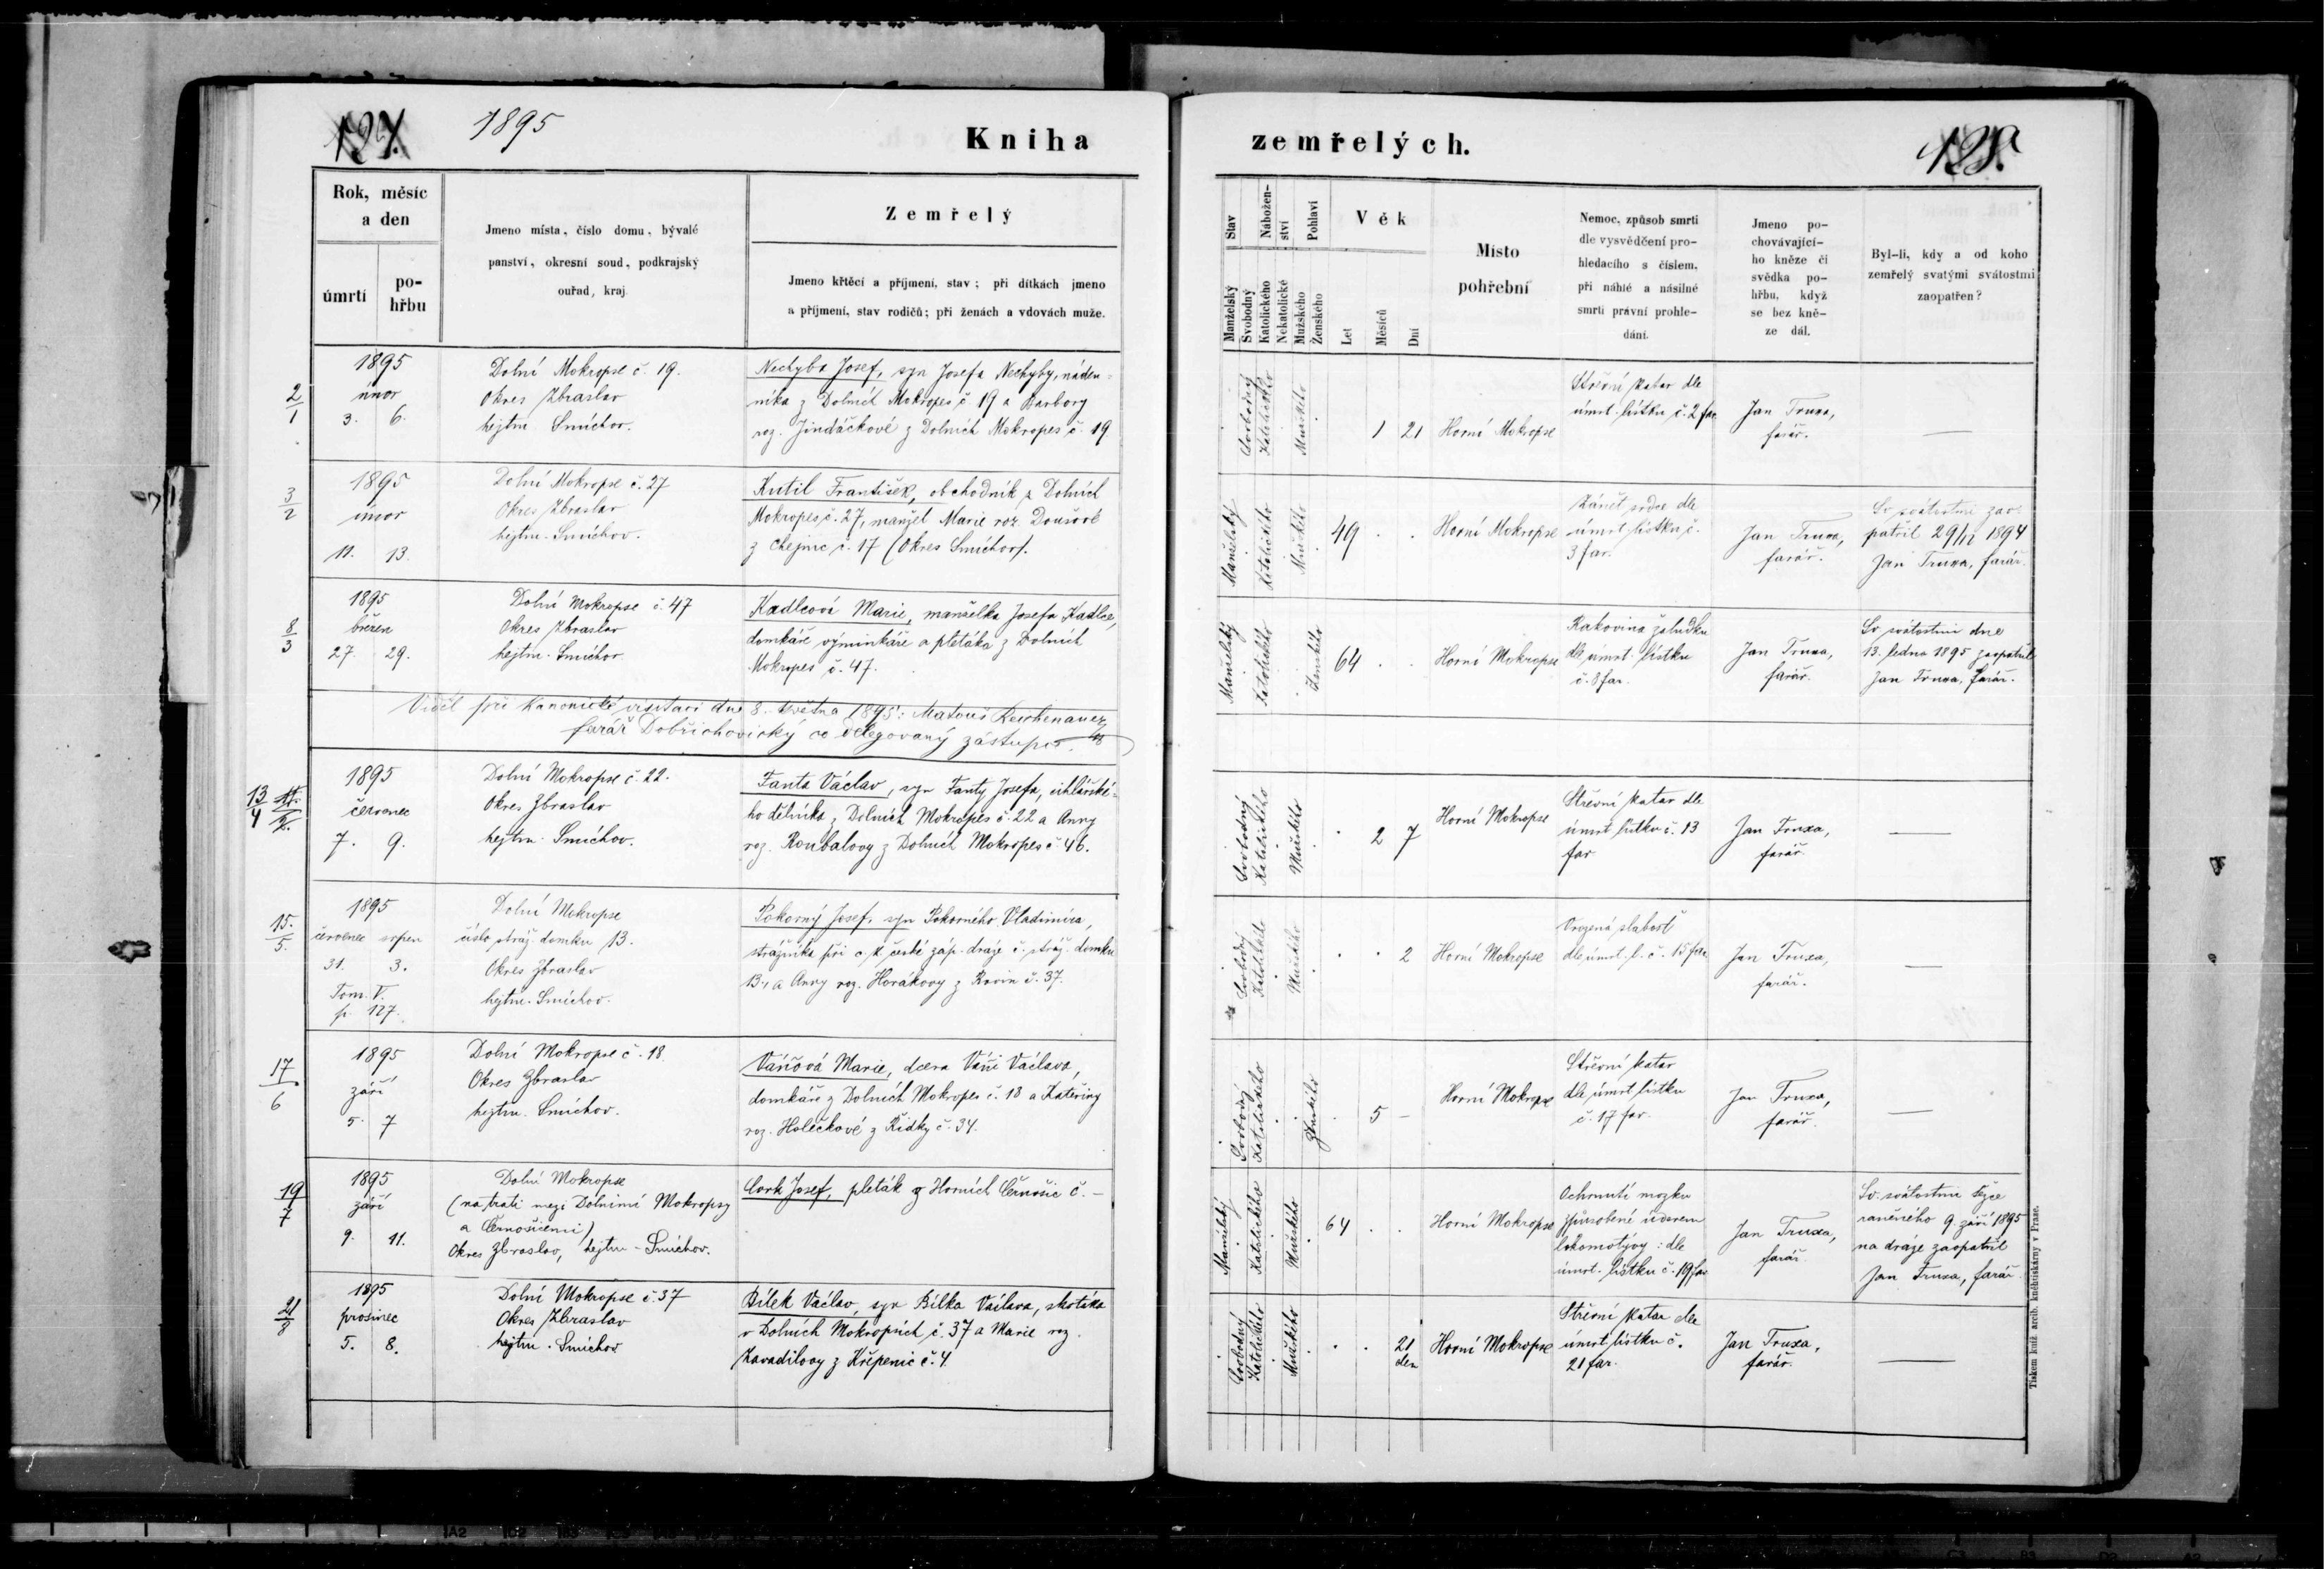 127.
1895
Kniha
zemřelých.
128.
Rok, měsíc
a den
úmrtí
po-
hřbu
Jmeno místa, číslo domu, bývalé
panství, okresní soud, podkrajský
ouřad, kraj.
Zemřelý
Jmeno křtěcí a příjmení, stav; při dítkách jmeno
a příjmení, stav rodičů; při ženách a vdovách muže.
Stav
Manželský
Svobodný
Nábožen-
ství
Katolického
Nekatolické
Pohlaví
Mužského
Ženského
Věk
Let
Měsíců
Dní
Místo
pohřební
Nemoc, způsob smrti
dle vysvědčení pro-
hledacího s číslem,
při náhlé a násilné
smrti právní prohle-
dání.
Jmeno po-
chovávající-
ho kněze či
svědka po-
hřbu, když
se bez kně-
ze dál.
Byl-li, kdy a od koho
zemřelý svatými svátostmi
zaopatřen?
2/1
1895
únor
3. 6.
Dolní Mokropse č. 19.
Okres Zbraslav
hejtm Smíchov.
Nechyba Josef, syn Josefa Nechyby, náden-
níka z Dolních Mokropes č. 19 a Barbory
roz. Jindáčkové z Dolních Mokropes č. 19
Svobodný
Katolického
Mužského
1 21
Horní Mokropse
Střevní katar dle
úmrt. lístku č. 2 far
Jan Truxa,
farář.
—
3/2
1895
únor
11. 13.
Dolní Mokropse č. 27
Okres Zbraslav
hejtm. Smíchov.
Kutil František, obchodník z Dolních
Mokropes č. 27, manžel Marie roz. Doušové
z Chejnic č. 17 (Okres Smíchov).
Manželský
Katolického
Mužského
49
Horní Mokropse
Zánět srdce dle
úmrt. lístku č.
3 far.
Jan Truxa,
farář.
Sv. svátostmi zao-
patřil 29/12 1894
Jan Truxa, farář.
8/3
1895
březen
27. 29.
Dolní Mokropse č. 47
Okres Zbraslav
hejtm. Smíchov
Kadlcová Marie, manželka Josefa Kadlce,
domkáře výminkáře a pletáka z Dolních
Mokropes č. 47.
Manželský
Katolického
Ženského
64
Horní Mokropse
Rakovina žaludku
dle úmrt. lístku
č. 8 far.
Jan Truxa,
farář.
Sv. svátostmi dne
13. ledna 1895 zaopatřil
Jan Truxa, farář.
Viděl při kanonické visitaci dne 8. května 1895: Matouš
farář Dobřichovický co delegovaný zástupce.
13/4
1895
červenec
7. 9.
Dolní Mokropse č. 22.
Okres Zbraslav
hejtm. Smíchov.
Fanta Václav, syn Fanty Josefa, cihlářské-
ho dělníka z Dolních Mokropes č. 22 a Anny
roz. Roubalovy z Dolních Mokropes č. 46.
Svobodný
Katolického
Mužského
2 7
Horní Mokropse
Střevní katar dle
úmrt. lístku č. 13
far.
Jan Truxa,
farář.
—
15./5.
1895
červenec srpen
31. 3.
Tom. V.
p. 127.
Dolní Mokropse
číslo stráž. domku 13.
Okres Zbraslav
hejtm. Smíchov.
Pokorný Josef, syn Pokorného Vladimíra,
strážníka při c. k. české záp. dráze č. stráž. domku
13., a Anny roz. Horákovy z Rovin č. 37.
Svobodný
Katolického
Mužského
2
Horní Mokropse
Vrozená slabosť
dle úmrt. l. č. 15 far
Jan Truxa,
farář.
—
17/6
1895
září
5. 7
Dolní Mokropse č. 18
Okres Zbraslav
hejtm. Smíchov.
Váňová Marie, dcera Váni Václava,
domkáře z Dolních Mokropes č. 18 a Kateřiny
roz. Holečkové z Řidky č. 34.
Svobodný
Katolického
Ženského
5 —
Horní Mokropse
Střevní katar
dle úmrt. lístku
č. 17 far.
Jan Truxa,
farář.
—
19/7
1895
září
9. 11.
Dolní Mokropse
(na trati mezi Dolními Mokropsy
a Černošicemi)
Okres Zbraslav, hejtm - Smíchov.
Cork Josef, pleták z Horních Černošic č. —
Manželský
Katolického
Mužského
64
Horní Mokropse
Ochrnutí mozku
způsobené úderem
lokomotývy: dle
úmrt. lístku č. 19 far
Jan Truxa,
farář.
Sv. svátostmi těžce
raněného 9. září 1895
na dráze zaopatřil
Jan Truxa, farář
21/8
1895
prosinec
5. 8.
Dolní Mokropse č. 37
Okres Zbraslav
hejtm. Smíchov
Bílek Václav, syn Bílka Václava, skotáka
v Dolních Mokropsích č. 37 a Marie roz.
Zavadilovy z Křepenic č. 4.
Svobodný
Katolického
Mužského
21
den
Horní Mokropse
Střevní katar dle
úmrt. lístku č.
21 far.
Jan Truxa,
farář.
—
Tiskem kníž. arcib. kněhtiskárny v Praze.